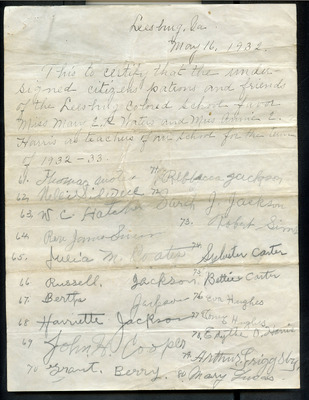 Leesburg, Va
May 16, 1932.
This to certify that the under
signed citizens, patrons and friends
of the Leesburg Colored School favor
Miss Mary E. and Miss Annie L.
Harris as teachers of our School for the
of 1932-33.
61. Thomas 71. Rebecca Jackson
62. 72. Sarah J. Jackson
63 W C Hatcher 73. Robert Sims
64. Rev. James
65. Julia M. Coates 74. Sylvester Carter
66 Russell. Jackson. 75 Bettie Carter
67. Bertha Jackson 76 Hughes
68 Harriette Jackson 77 Hughes
69 John H. Cooper 78 Edythe R. Harris
79 Arthur Grigsby
70 Grant. Berry. 80 Mary Lucas